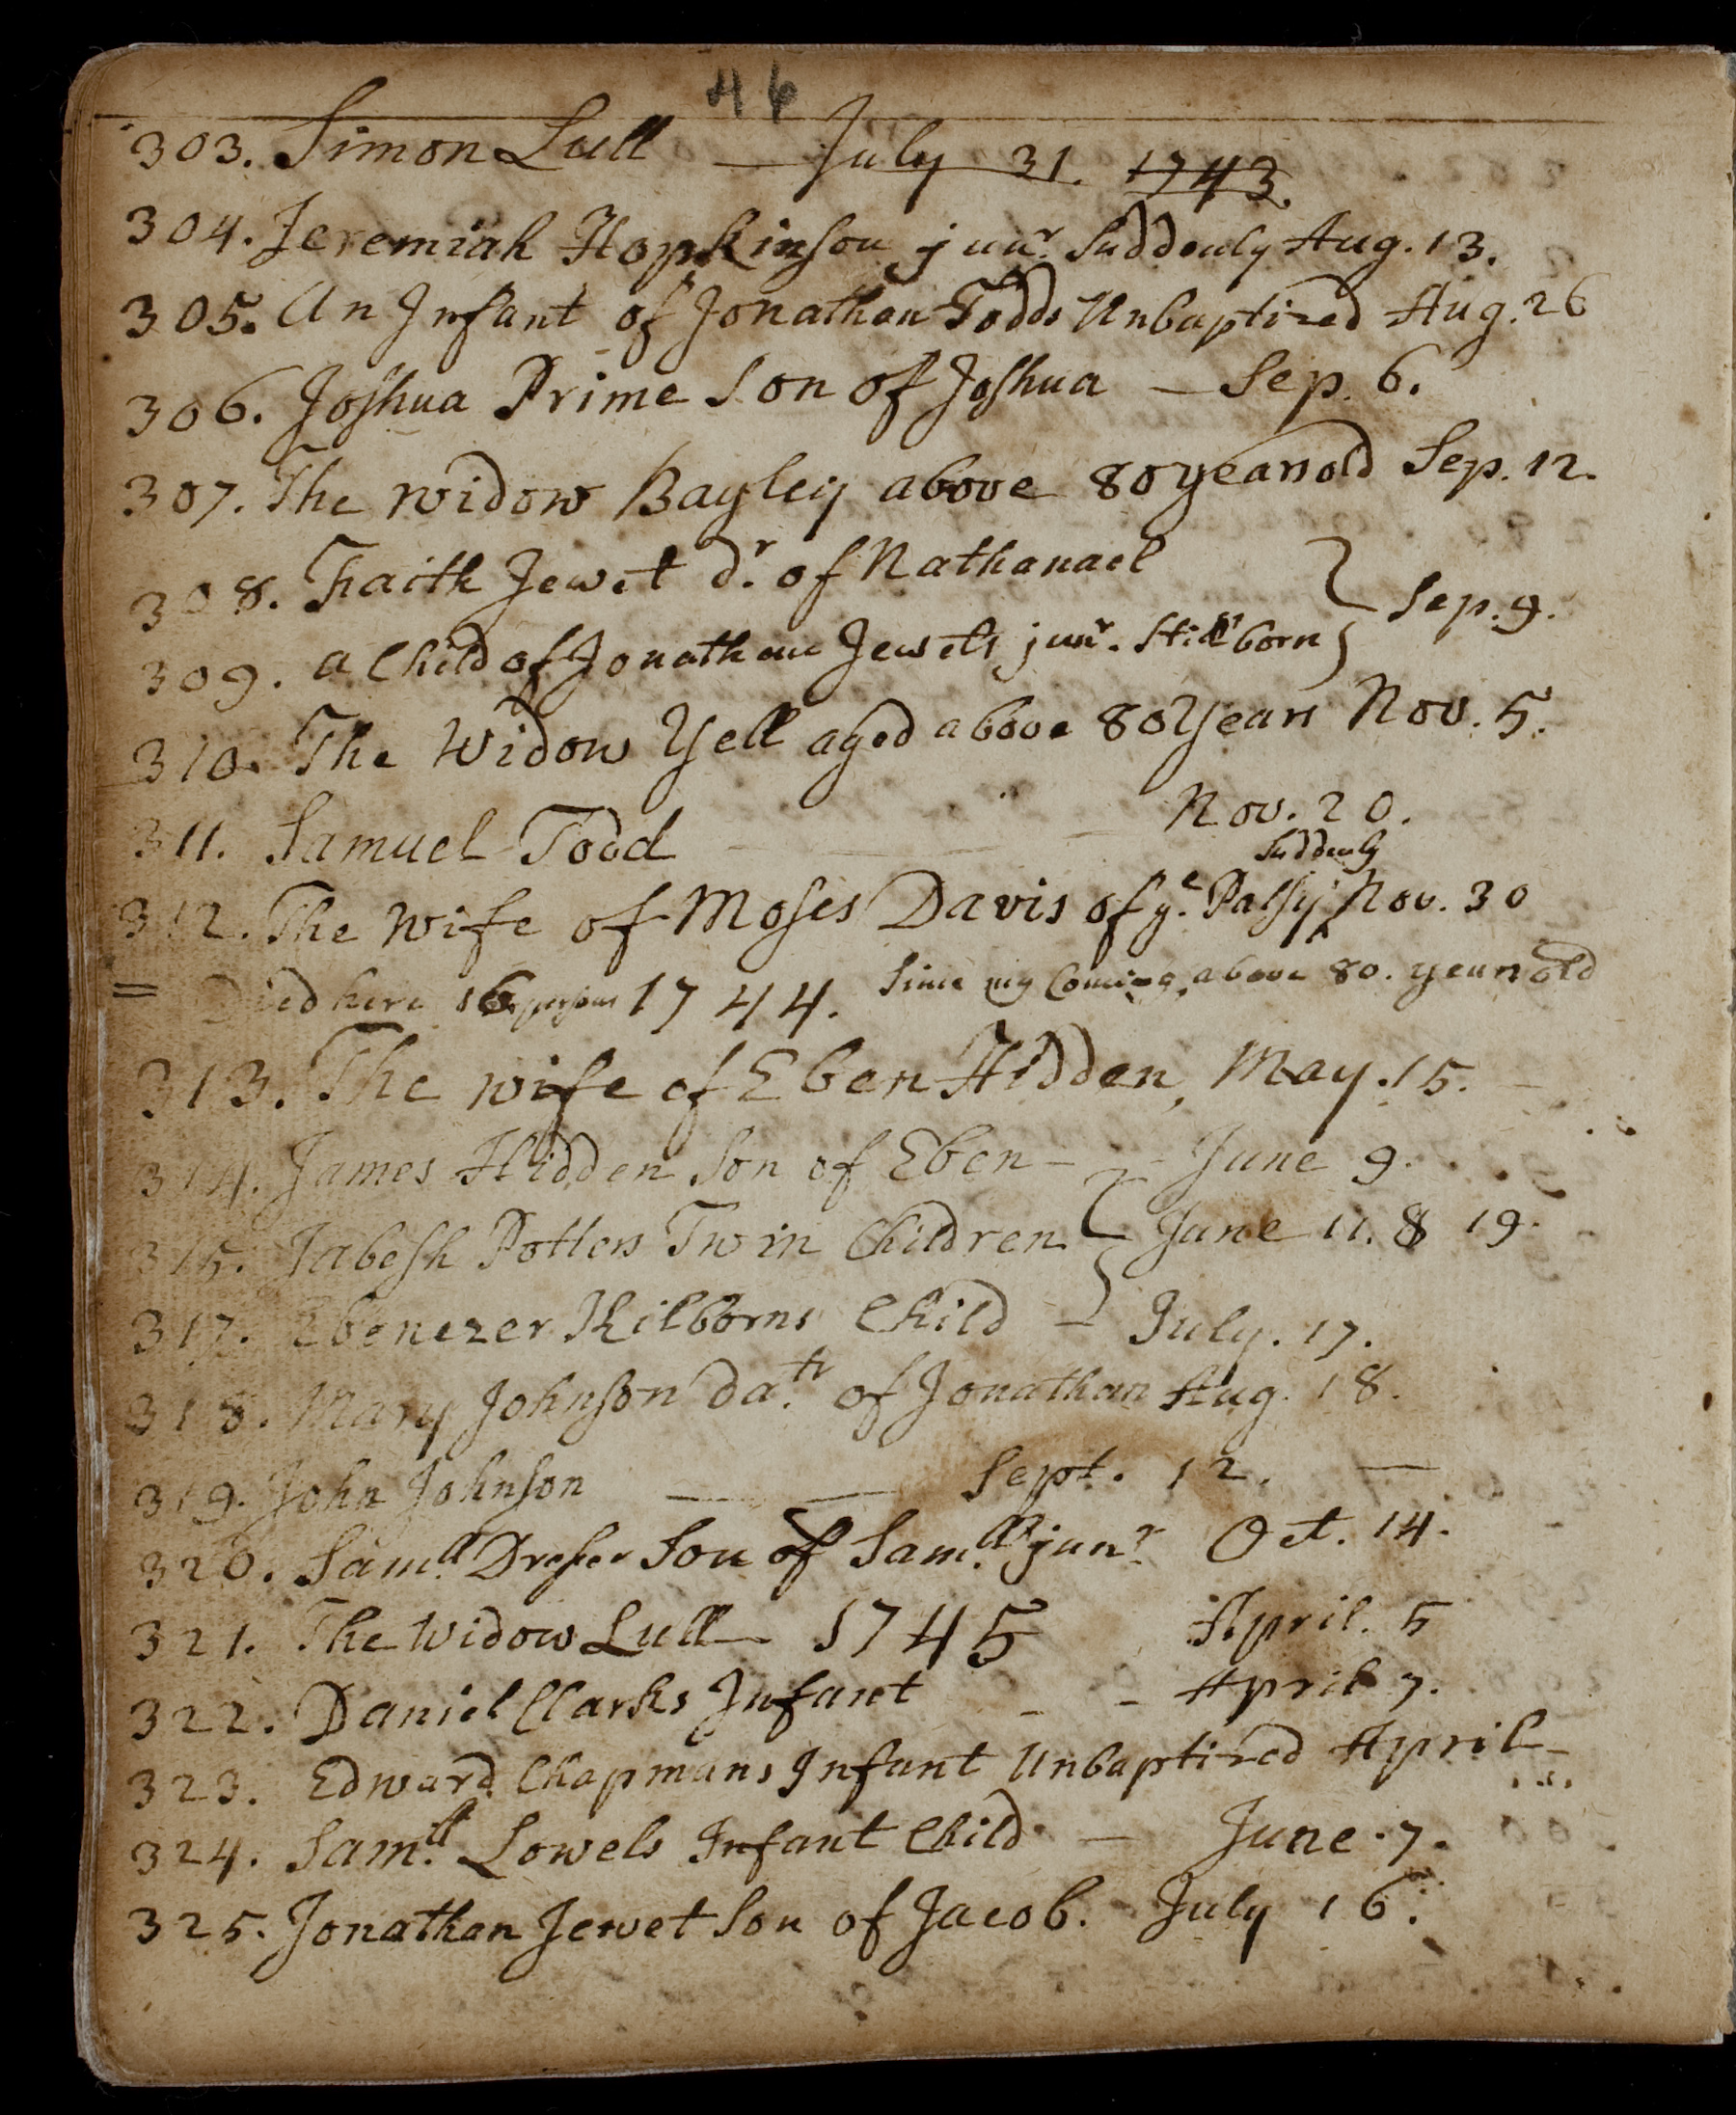 46
303. Simon Lull — July 31. 1743.
304. Jeremiah Hopkinson junr. Suddenly Aug. 13.
305. An Infant of Jonathan Todds Unbaptized Aug. 26
306. Joshua Prime Son of Joshua — Sep. 6.
307. The widow Bayley above 80 years old Sep. 12.
308. Faith Jewet dr. of Nathanael
Sep. 9.
309. a Child of Jonathan Jewets junr. Still born
310. The Widow Yell aged above 80 Years Nov. 5.
311. Samuel Todd — Nov. 20.
Suddenly
312. The Wife of Moses Davis of ye. Palsy, Nov. 30
= Died here 16 persons 1744. Since my Coming, above 80. years old
313. The wife of Eben Hidden, May. 15. —
314. James Hidden Son of Eben — June 9.
315. Jabesh Potters Twin Children June 11. & 19.
317. Ebenezer Kilborns Child — July. 17.
318. Mary Johnson datr. of Jonathan Aug. 18.
319. John Johnson — — Sept. 12. —
320. Samll. Dreser Son of Samll. junr. Oct. 14.
321. The Widow Lull — 1745 April. 5
322. Daniel Clarks Infant — – April 7.
323. Edward Chapmans Infant Unbaptized April —
324. Samll. Lowels Infant Child — June 7.
325. Jonathan Jewet Son of Jacob. July 16.